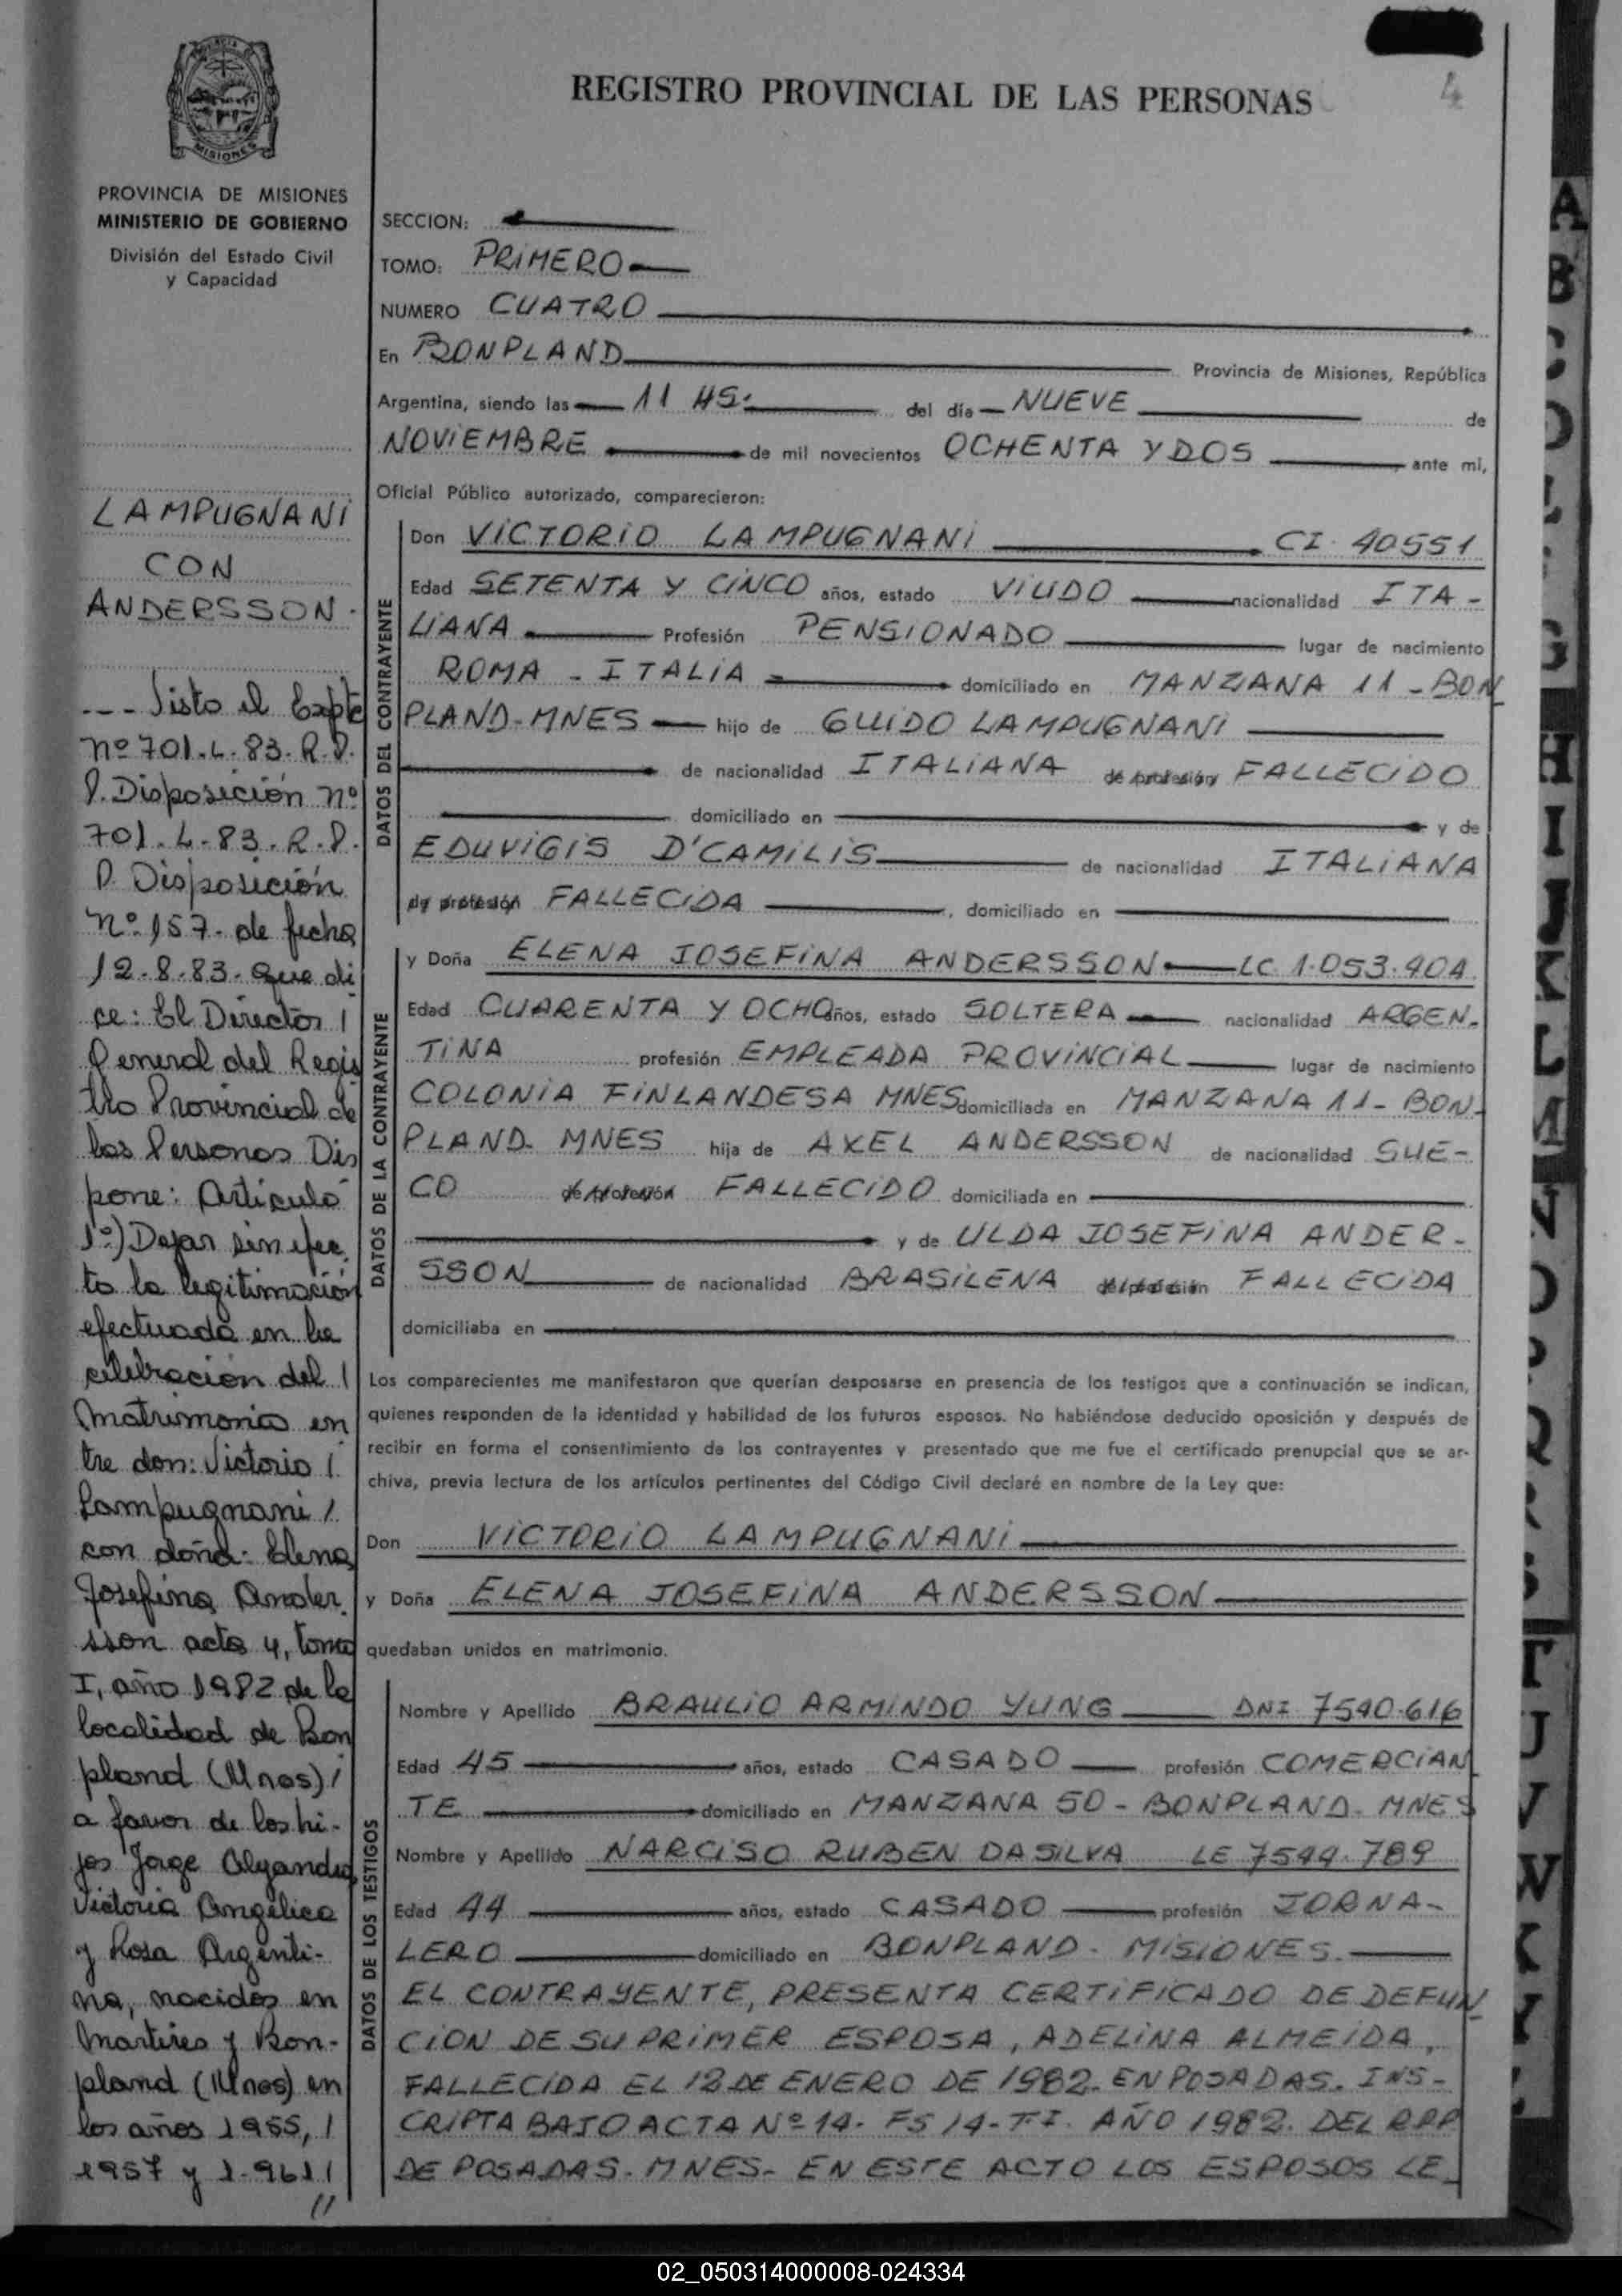 4
REGISTRO PROVINCIAL DE LAS PERSONAS
MISIONES
PROVINCIA DE MISIONES
MINISTERIO DE GOBIERNO
División del Estado Civil
y Capacidad
LAMPUGNANI
CON
ANDERSSON.
--- Visto el Expte
nº 701.L.83.R.P.
P. Disposición nº
701.L-83.R.P.
P. Disposición
nº 157. de fecha
12.8.83. que di
ce: El Director
General del Regis
tro Provincial de
las Personas Dis
pone: Artículo
1º) Dejar sin efec
to la legitimación
efectuada en la
celebración del
Matrimonio en
tre don: Victorio
Lampugnani
con doña: Elena
Josefina Ander
sson acta 4, tomo
I, año 1982 de la
localidad de Bon
pland (Mnes)
a favor de los hi-
jos Jorge Alejandro,
Victoria Angélica
y Rosa Argenti-
na, nacidos en
Martires y Bon-
pland (Mnes) en
los años 1955,
1957 y 1.961
//
SECCION:
TOMO: PRIMERO
NUMERO CUATRO
En BONPLAND Provincia de Misiones, República
Argentina, siendo las 11 HS. del día NUEVE de
NOVIEMBRE de mil novecientos OCHENTA Y DOS ante mí,
Oficial Público autorizado, comparecieron:
DATOS DEL CONTRAYENTE
Don VICTORIO LAMPUGNANI CI. 40551
Edad SETENTA Y CINCO años, estado VIUDO nacionalidad ITA-
LIANA Profesión PENSIONADO lugar de nacimiento
ROMA - ITALIA domiciliado en MANZANA 11 - BON
PLAND-MNES hijo de GUIDO LAMPUGNANI
de nacionalidad ITALIANA de profesión FALLECIDO
domiciliado en y de
EDUVIGIS D'CAMILIS de nacionalidad ITALIANA
de profesión FALLECIDA, domiciliado en
DATOS DE LA CONTRAYENTE
y Doña ELENA JOSEFINA ANDERSSON LC 1.053.404
Edad CUARENTA Y OCHO años, estado SOLTERA nacionalidad ARGEN-
TINA profesión EMPLEADA PROVINCIAL lugar de nacimiento
COLONIA FINLANDESA MNES domiciliada en MANZANA 11- BON-
PLAND. MNES hija de AXEL ANDERSSON de nacionalidad SUE-
CO de profesión FALLECIDO domiciliada en
y de ULDA JOSEFINA ANDER-
SSON de nacionalidad BRASILENA de profesión FALLECIDA
domiciliaba en
Los comparecientes me manifestaron que querían desposarse en presencia de los testigos que a continuación se indican,
quienes responden de la identidad y habilidad de los futuros esposos. No habiéndose deducido oposición y después de
recibir en forma el consentimiento de los contrayentes y presentado que me fue el certificado prenupcial que se ar-
chiva, previa lectura de los artículos pertinentes del Código Civil declaré en nombre de la Ley que:
Don VICTORIO LAMPUGNANI
y Doña ELENA JOSEFINA ANDERSSON
quedaban unidos en matrimonio.
DATOS DE LOS TESTIGOS
Nombre y Apellido BRAULIO ARMINDO YUNG DNI 7540.616
Edad 45 años, estado CASADO profesión COMERCIAN
TE domiciliado en MANZANA 50 - BONPLAND. MNES
Nombre y Apellido NARCISO RUBEN DASILVA LE 7544.789
Edad 44 años, estado CASADO profesión JORNA-
LERO domiciliado en BONPLAND - MISIONES.
EL CONTRAYENTE, PRESENTA CERTIFICADO DE DEFUN
CION DE SU PRIMER ESPOSA, ADELINA ALMEIDA,
FALLECIDA EL 12 DE ENERO DE 1982. EN POSADAS. INS-
CRIPTA BAJO ACTA Nº 14- FS 14- T-I. AÑO 1982. DEL RPP
DE POSADAS. MNES- EN ESTE ACTO LOS ESPOSOS LE
A
B
H
I
J
K
L
M
T
U
V
W
02_050314000008-024334